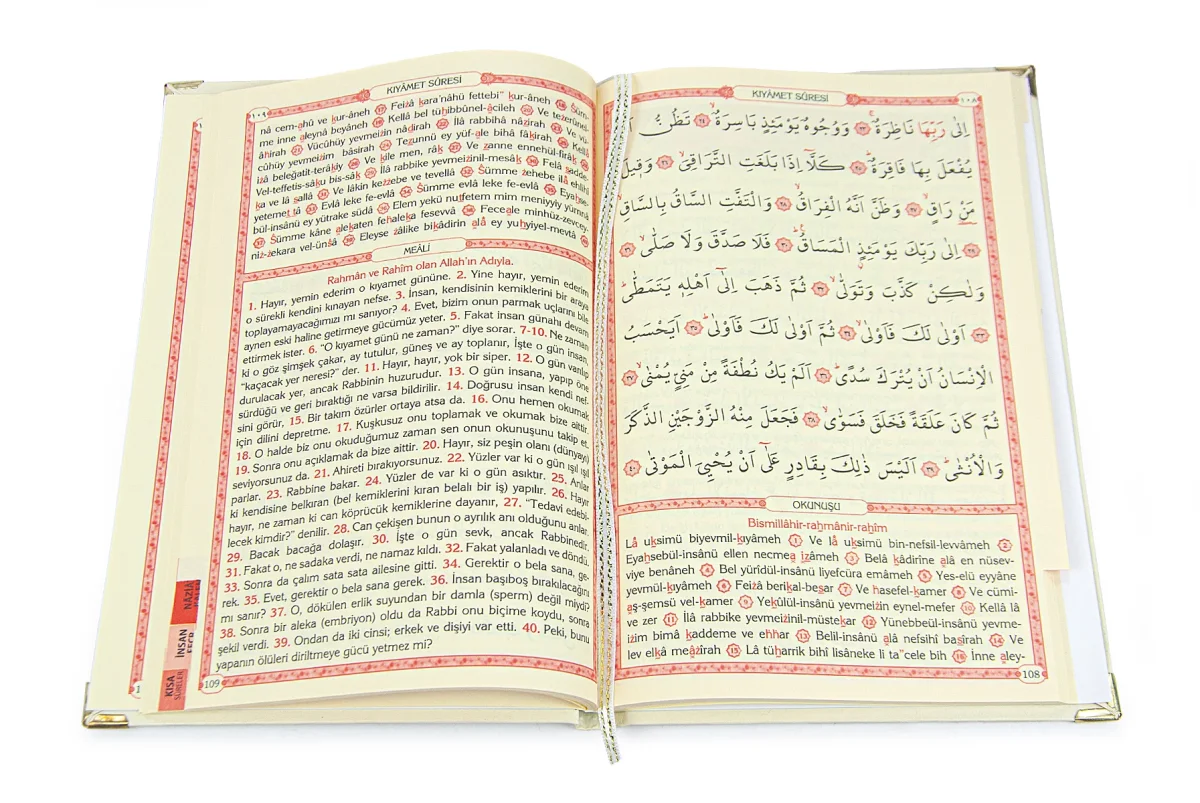 KIYÂMET SÛRESİ
١٠٨
اِلٰى رَبِّهَا نَاظِرَةٌۚ ﴿٢٣﴾ وَوُجُوهٌ يَوْمَئِذٍ بَاسِرَةٌۙ ﴿٢٤﴾ تَظُنُّ اَنْ
يُفْعَلَ بِهَا فَاقِرَةٌۜ ﴿٢٥﴾ كَلَّٓا اِذَا بَلَغَتِ التَّرَاقِيَۙ ﴿٢٦﴾ وَق۪يلَ
مَنْ رَاقٍۙ ﴿٢٧﴾ وَظَنَّ اَنَّهُ الْفِرَاقُۙ ﴿٢٨﴾ وَالْتَفَّتِ السَّاقُ بِالسَّاقِۙ
﴿٢٩﴾ اِلٰى رَبِّكَ يَوْمَئِذٍ الْمَسَاقُۜ ﴿٣٠﴾ فَلَا صَدَّقَ وَلَا صَلّٰىۙ ﴿٣١﴾
وَلٰكِنْ كَذَّبَ وَتَوَلّٰىۙ ﴿٣٢﴾ ثُمَّ ذَهَبَ اِلٰٓى اَهْلِه۪ يَتَمَطّٰىۜ
﴿٣٣﴾ اَوْلٰى لَكَ فَاَوْلٰىۙ ﴿٣٤﴾ ثُمَّ اَوْلٰى لَكَ فَاَوْلٰىۜ ﴿٣٥﴾ اَيَحْسَبُ
الْاِنْسَانُ اَنْ يُتْرَكَ سُدًىۜ ﴿٣٦﴾ اَلَمْ يَكُ نُطْفَةً مِنْ مَنِيٍّ يُمْنٰىۙ ﴿٣٧﴾
ثُمَّ كَانَ عَلَقَةً فَخَلَقَ فَسَوّٰىۙ ﴿٣٨﴾ فَجَعَلَ مِنْهُ الزَّوْجَيْنِ الذَّكَرَ
وَالْاُنْثٰىۜ ﴿٣٩﴾ اَلَيْسَ ذٰلِكَ بِقَادِرٍ عَلٰٓى اَنْ يُحْيِيَ الْمَوْتٰى ﴿٤٠﴾
OKUNUŞU
Bismillâhir-rahmânir-rahîm
Lâ uksimü biyevmil-kıyâmeh (1) Ve lâ uksimü bin-nefsil-levvâmeh (2)
Eyahsebül-insânü ellen necmea izâmeh (3) Belâ kâdirîne alâ en nüsev-
viye benâneh (4) Bel yürîdül-insânü liyefcüra emâmeh (5) Yes-elü eyyâne
yevmül-kıyâmeh (6) Feizâ berikal-besar (7) Ve hasefel-kamer (8) Ve cümi-
aş-şemsü vel-kamer (9) Yekûlül-insânü yevmeizin eynel-mefer (10) Kellâ lâ
ve zer (11) İlâ rabbike yevmeizinil-müstekar (12) Yünebbeül-insânü yevme-
izim bimâ kaddeme ve ehhar (13) Belil-insânü alâ nefsihî basîrah (14) Ve
lev elkâ meâzîrah (15) Lâ tüharrik bihî lisâneke li ta"cele bih (16) İnne aley-
108
KIYÂMET SÛRESİ
١٠٩
nâ cem-ahû ve kur-âneh (17) Feizâ kara'nâhü fettebi" kur-âneh (18) Süm-
me inne aleynâ beyâneh (19) Kellâ bel tühibbûnel-âcileh (20) Ve tezerûnel-
âhirah (21) Vücûhüy yevmeizin nâdirah (22) İlâ rabbihâ nâzirah (23) Ve vü-
cûhüy yevmeizim bâsirah (24) Tezunnü ey yüf-ale bihâ fâkirah (25) Kellâ
izâ beleğatit-terâkiy (26) Ve kîle men, râk (27) Ve zanne ennehül-firâk (28)
Vel-teffetis-sâku bis-sâk (29) İlâ rabbike yevmeizinil-mesâk (30) Felâ sadde-
ka ve lâ sallâ (31) Ve lâkin kezzebe ve tevellâ (32) Sümme zehebe ilâ ehlihî
yetemettâ (33) Evlâ leke fe-evlâ (34) Sümme evlâ leke fe-evlâ (35) Eyahse-
bül-insânü ey yütrake südâ (36) Elem yekü nutfetem mim meniyyiy yümnâ
(37) Sümme kâne alekaten fehaleka fesevvâ (38) Feceale minhüz-zevcey-
niz-zekara vel-ünsâ (39) Eleyse zâlike bikâdirin alâ ey yuhyiyel-mevtâ (40)
MEÂLİ
Rahmân ve Rahîm olan Allah'ın Adıyla.
1. Hayır, yemin ederim o kıyamet gününe. 2. Yine hayır, yemin ederim
o sürekli kendini kınayan nefse. 3. İnsan, kendisinin kemiklerini bir araya
toplayamayacağımızı mı sanıyor? 4. Evet, bizim onun parmak uçlarını bile
aynen eski haline getirmeye gücümüz yeter. 5. Fakat insan günahı devam
ettirmek ister. 6. "O kıyamet günü ne zaman?" diye sorar. 7-10. Ne zaman
ki o göz şimşek çakar, ay tutulur, güneş ve ay toplanır, İşte o gün insan
"kaçacak yer neresi?" der. 11. Hayır, hayır, yok bir siper. 12. O gün varılıp
durulacak yer, ancak Rabbinin huzurudur. 13. O gün insana, yapıp öne
sürdüğü ve geri bıraktığı ne varsa bildirilir. 14. Doğrusu insan kendi nef-
sini görür, 15. Bir takım özürler ortaya atsa da. 16. Onu hemen okumak
için dilini depretme. 17. Kuşkusuz onu toplamak ve okumak bize aittir.
18. O halde biz onu okuduğumuz zaman sen onun okunuşunu takip et.
19. Sonra onu açıklamak da bize aittir. 20. Hayır, siz peşin olanı (dünyayı)
seviyorsunuz da. 21. Ahireti bırakıyorsunuz. 22. Yüzler var ki o gün ışıl ışıl
parlar. 23. Rabbine bakar. 24. Yüzler de var ki o gün asıktır. 25. Anlar
ki kendisine belkıran (bel kemiklerini kıran belalı bir iş) yapılır. 26. Hayır
hayır, ne zaman ki can köprücük kemiklerine dayanır, 27. "Tedavi edebi-
lecek kimdir?" denilir. 28. Can çekişen bunun o ayrılık anı olduğunu anlar.
29. Bacak bacağa dolaşır. 30. İşte o gün sevk, ancak Rabbinedir.
31. Fakat o, ne sadaka verdi, ne namaz kıldı. 32. Fakat yalanladı ve döndü.
33. Sonra da çalım sata sata ailesine gitti. 34. Gerektir o bela sana, ge-
rek. 35. Evet, gerektir o bela sana gerek. 36. İnsan başıboş bırakılacağını
mı sanır? 37. O, dökülen erlik suyundan bir damla (sperm) değil miydi?
38. Sonra bir aleka (embriyon) oldu da Rabbi onu biçime koydu, sonra
şekil verdi. 39. Ondan da iki cinsi; erkek ve dişiyi var etti. 40. Peki, bunu
yapanın ölüleri diriltmeye gücü yetmez mi?
109
NÂZİÂ
İNSAN
KISA
SÛRELER